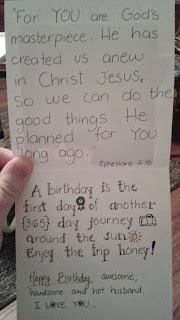 "For YOU are God's
masterpiece. He has
created us anew
in Christ Jesus,
so we can do the
good things He
planned for YOU
long ago."
Ephesians 2:10
A birthday is the
first day of another
{365} day journey
around the sun
Enjoy the trip honey!
Happy Birthday awesome,
handsome and hot husband.
I LOVE YOU...